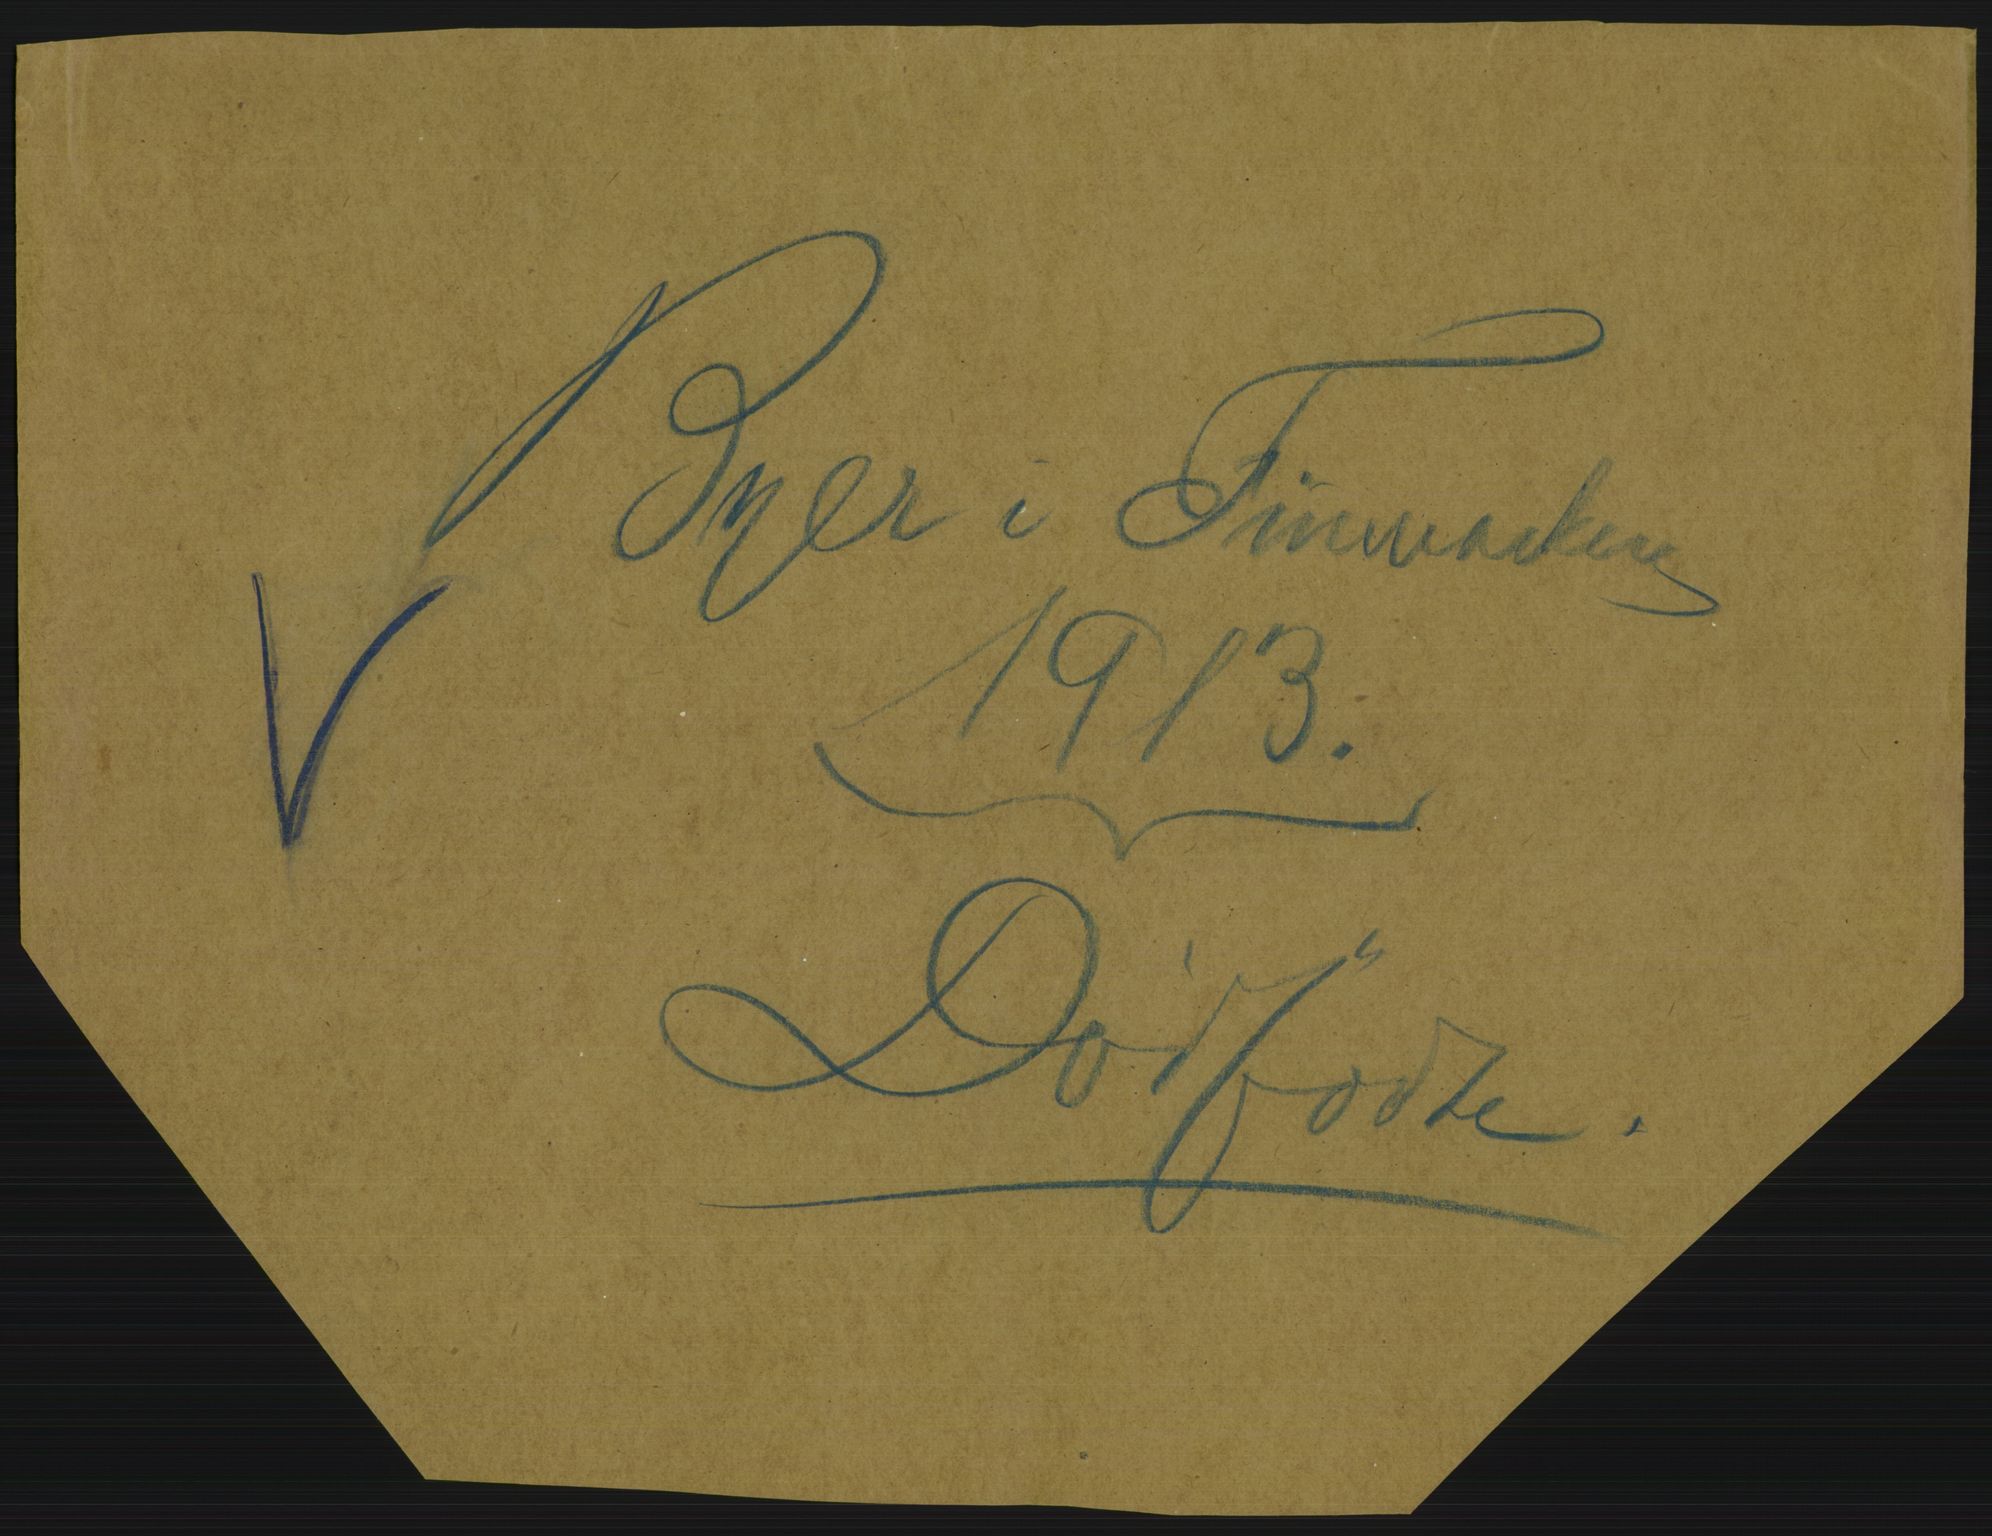 Byer i Finmarken
1913.
Dödfödte.